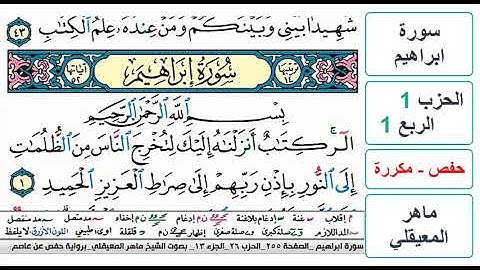 شَهِيدًۢا بَيْنِى وَبَيْنَكُمْ وَمَنْ عِندَهُۥ عِلْمُ ٱلْكِتَٰبِ ٤٣
ترتيبها ١٤ سُورَةُ إِبْرَاهِيمَ آياتها ٥٢
بِسْمِ ٱللَّهِ ٱلرَّحْمَٰنِ ٱلرَّحِيمِ
الٓر ۚ كِتَٰبٌ أَنزَلْنَٰهُ إِلَيْكَ لِتُخْرِجَ ٱلنَّاسَ مِنَ ٱلظُّلُمَٰتِ
إِلَى ٱلنُّورِ بِإِذْنِ رَبِّهِمْ إِلَىٰ صِرَٰطِ ٱلْعَزِيزِ ٱلْحَمِيدِ ١
سورة ابراهيم _الصفحة ٢٥٥_الحزب ٢٦_الجزء ١٣_ بصوت الشيخ ماهر المعيقلي_برواية حفص عن عاصم
سورة
ابراهيم
الحزب 1
الربع 1
حفص - مكررة
ماهر
المعيقلي